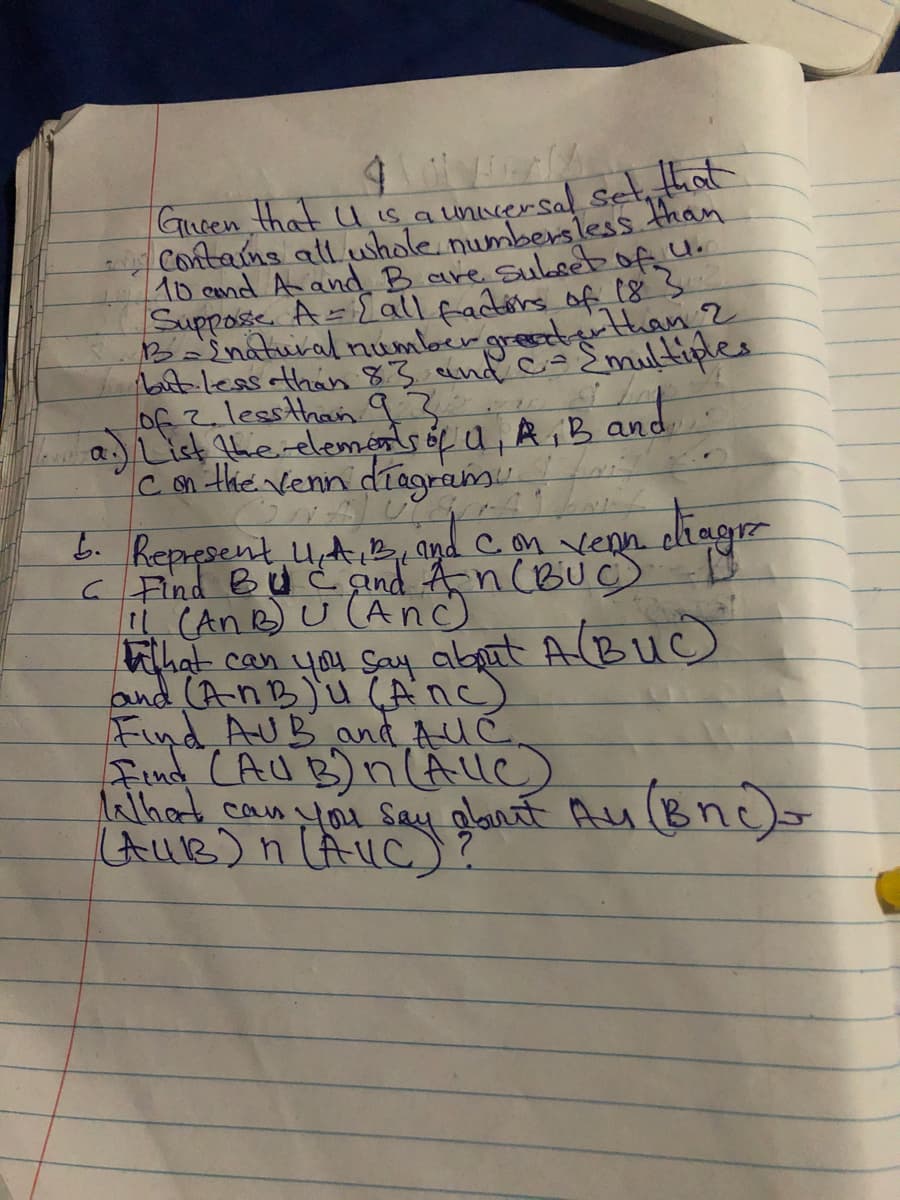 Given that U is a universal set, that
contains all whole numbers less than
10 and A and B are subset of U.
Suppose A = {all factors of 18}
B = {natural number greater than 2
but less than 8} and C = {multiples
of 2 less than 9}
a.) List the elements of U, A, B and
C on the venn diagram
b. Represent U, A, B, and C on venn diagr
c Find B U C and A n (B U C)
ii (A n B) U (A n C)
What can you say about A (B U C)
and (A n B) U (A n C)
Find A U B and A U C
Find (A U B) n (A U C)
What can you say about A U (B n C) =
(A U B) n (A U C)?